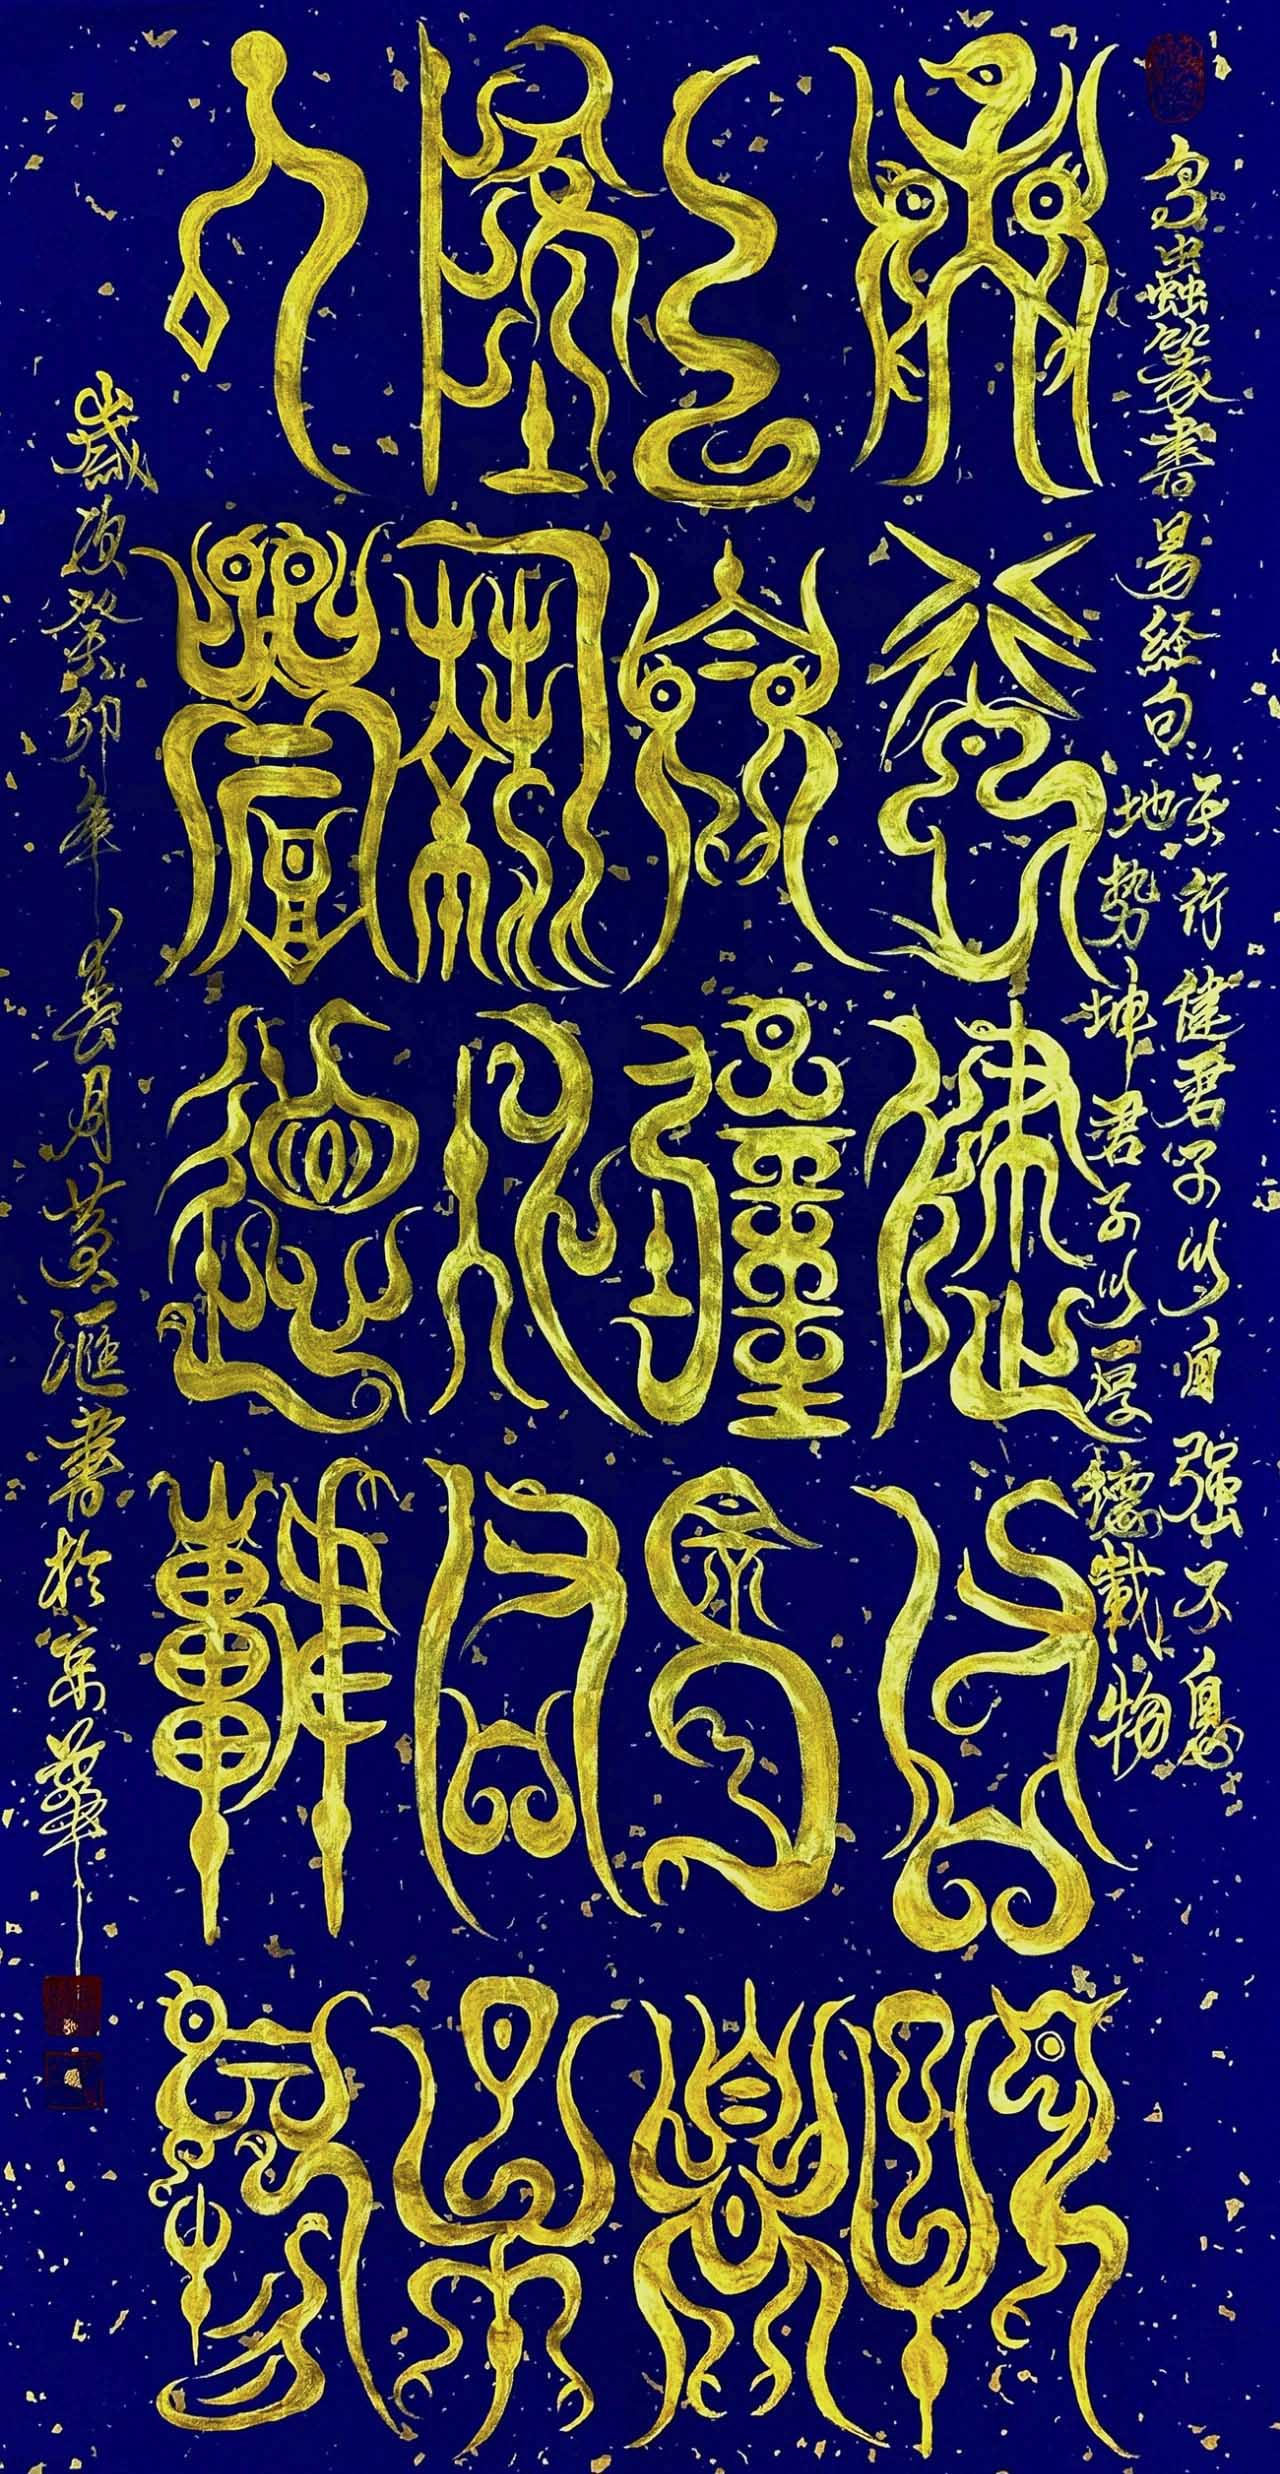 天行健君子
以自强不息
地勢坤君子
以厚德載物
鸟蟲篆書易经句天行健君子以自强不息
地勢坤君子以厚德載物
歲次癸卯年春月黄滙書於京華